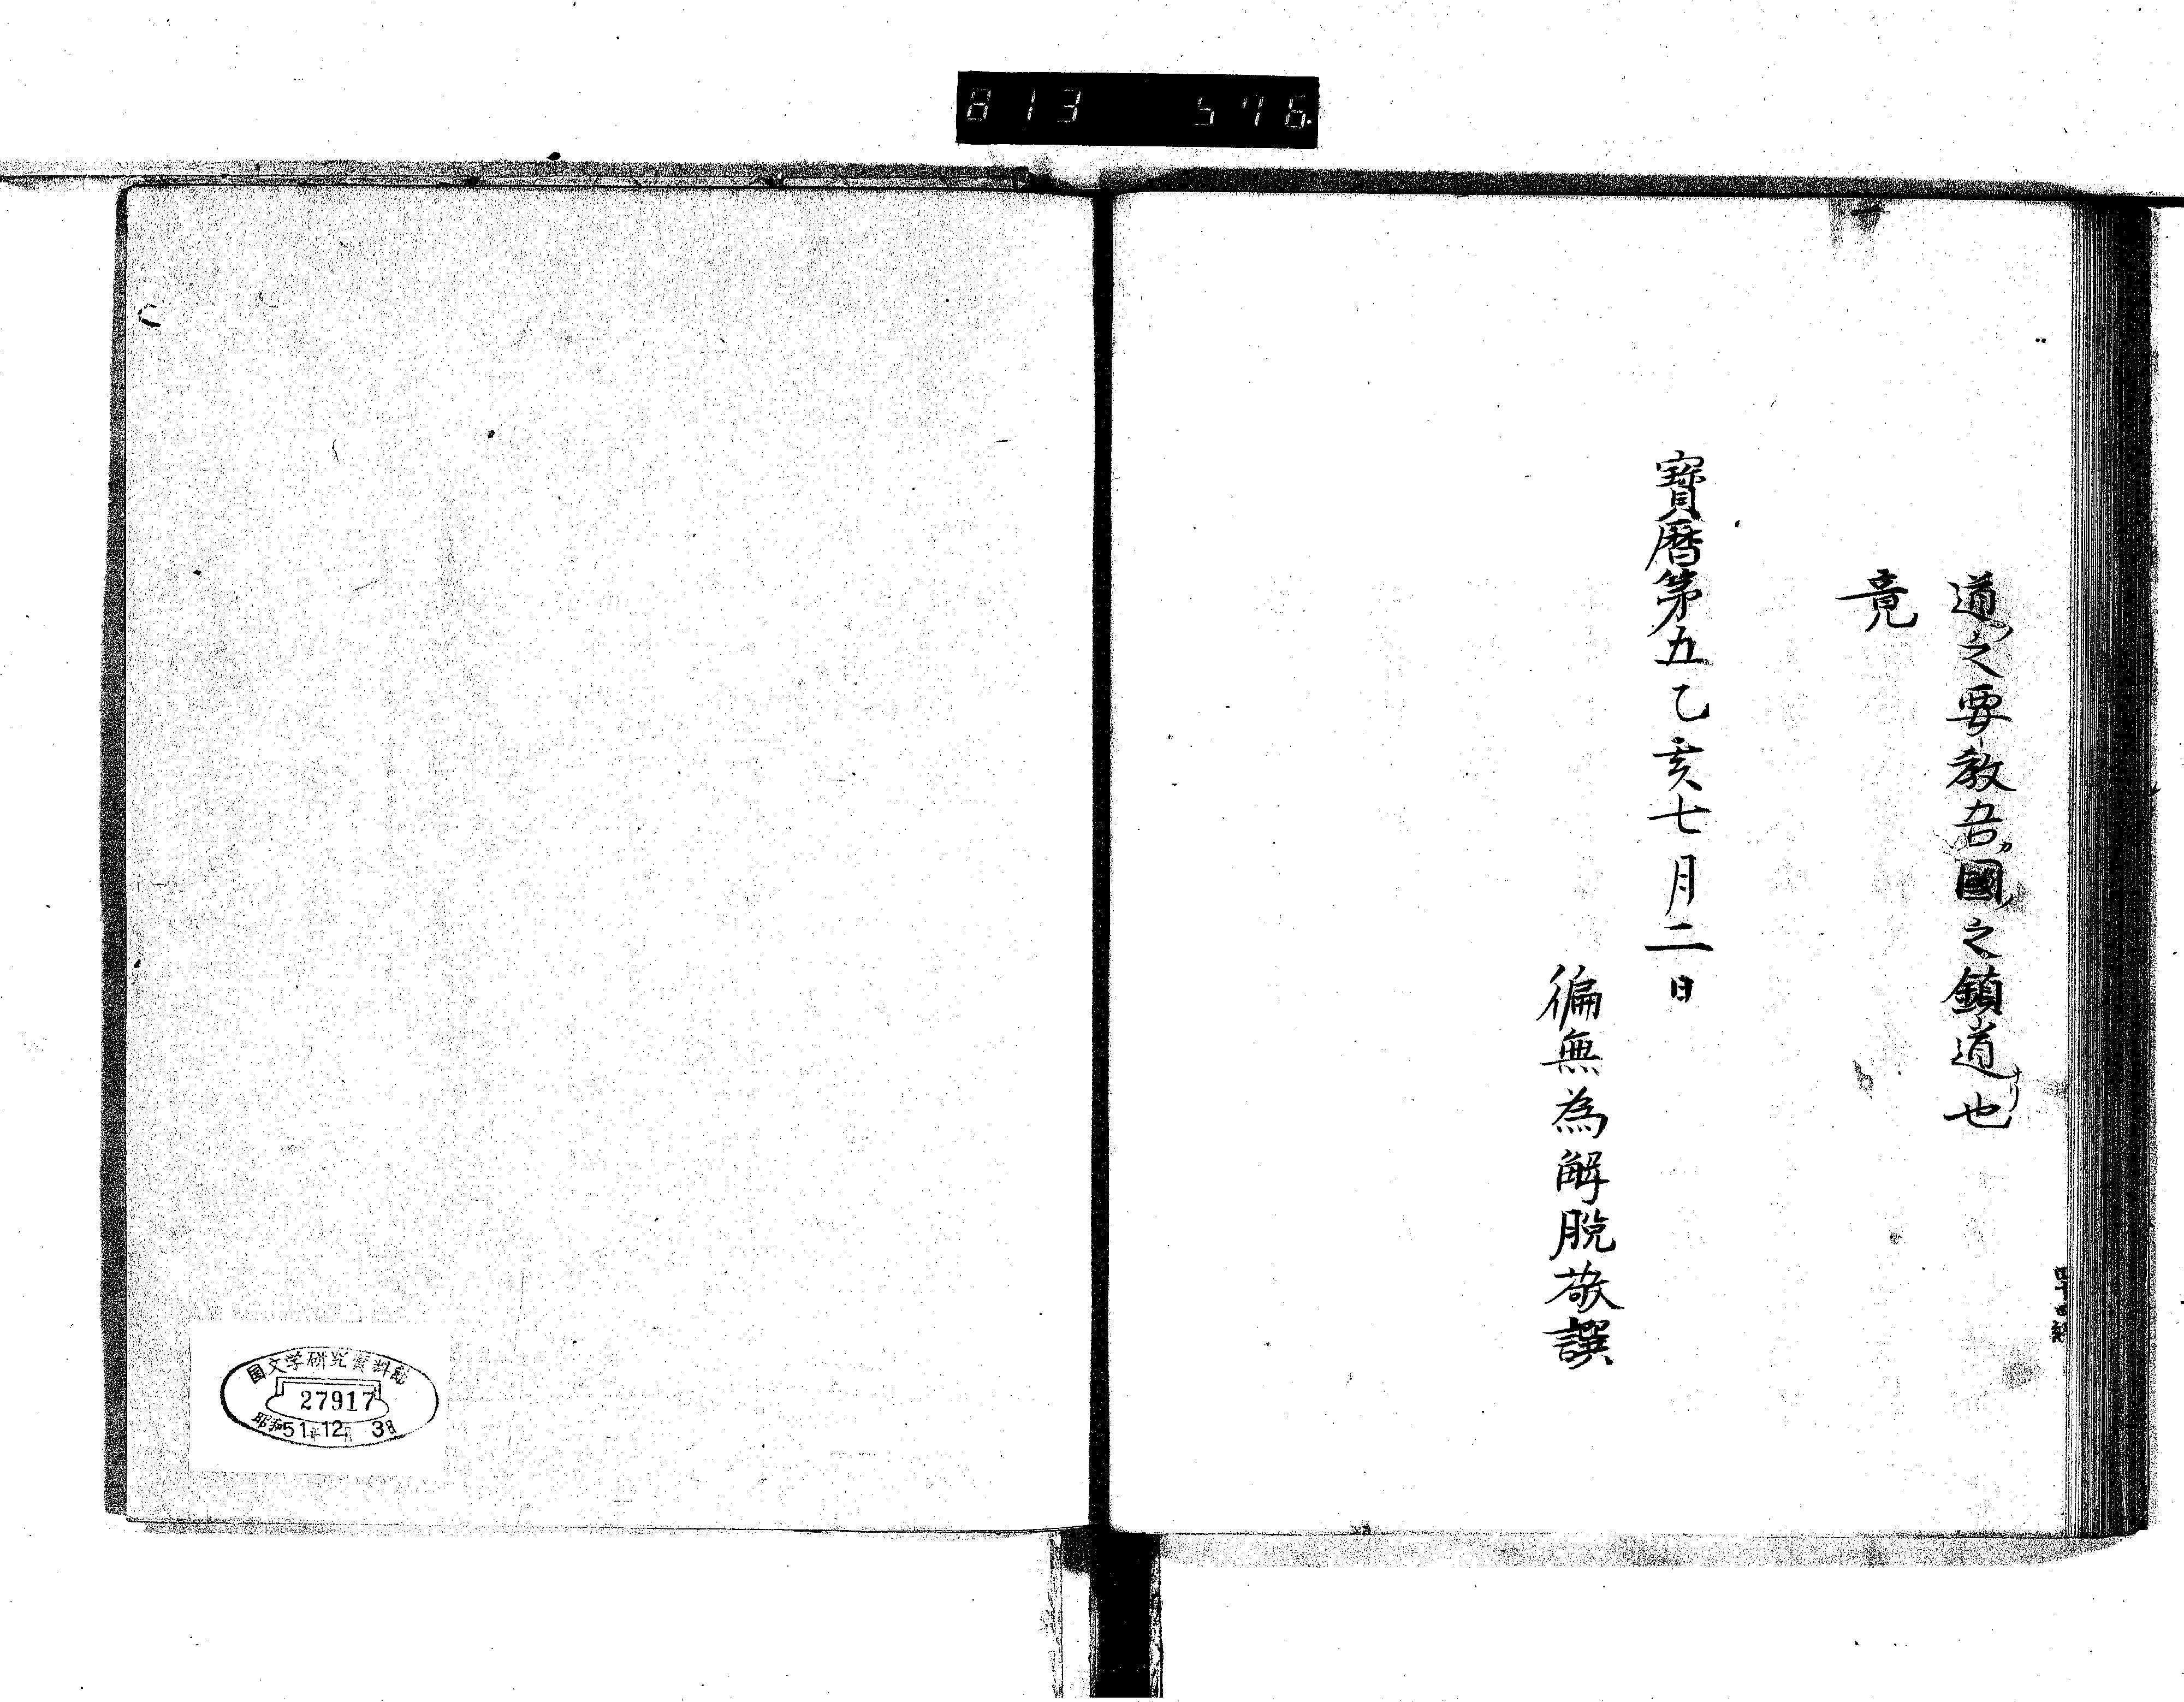 813 576.
道ノ之要教吾ガ國ノ之鎮道ナリ也
竟
寶曆第五乙亥七月二日
徧無為解脫敬譔
国文学研究資料館
27917
昭和51年12月3日